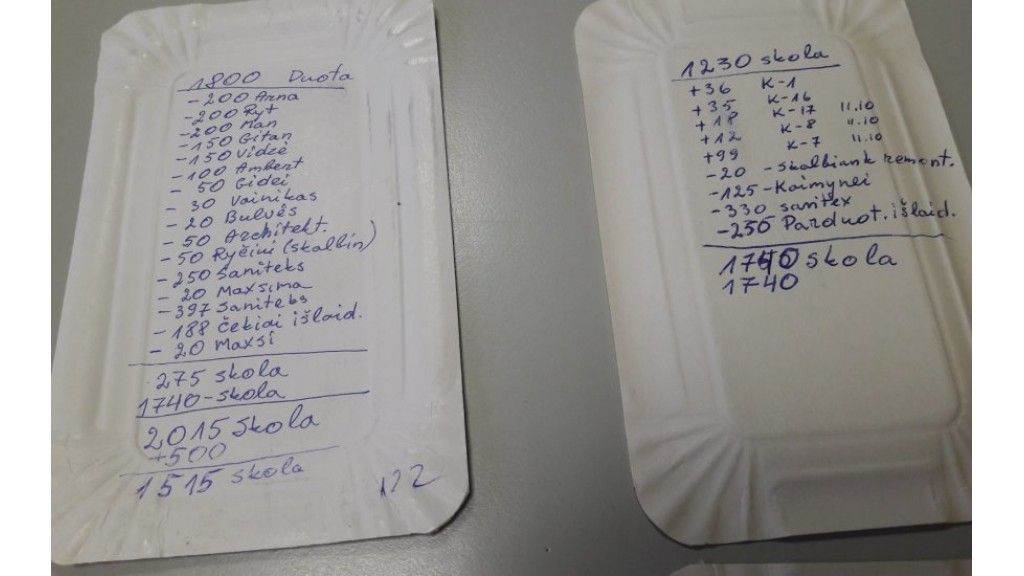 1800 Duota
-200 Anna
-200 Ryt
-200 Man
-150 Gitan
-150 Videi
-100 Ambert
- 50 Gidei
- 30 Vainikas
- 20 Bulvės
- 50 Architekt.
- 50 Ryčiui (skalbin)
-250 Saniteks
- 20 Maxsima
-397 Saniteks
-188 Čekiai išlaid.
- 20 Maxsi
275 skola
1740-skola
2015 skola
+500
1515 skola
1230 skola
+36 K-1
+35 K-16
+18 K-17 11.10
+12 K-8 11.10
+99 K-7 11.10
-20 -Skalbiank remont.
-125-Kaimynei
-330 sanitex
-250 Parduot. išlaid.
1740 skola
1740